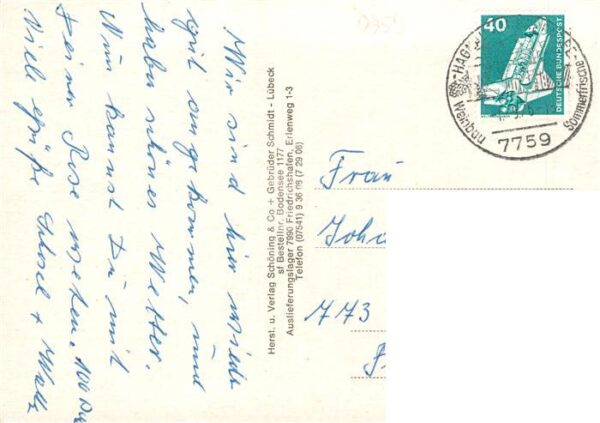 Wir sind hier wieder
gut angekommen, und
haben schönes Wetter.
Nun kannst Du mit
Deiner Rose
Viele Grüße
Herst. u. Verlag Schöning & Co + Gebrüder Schmidt - Lübeck
sf Bestellnr. Bodensee 1177
Auslieferungslager 7990 Friedrichshafen, Erlenweg 1-3
Telefon (07541) 9 36 08 (7 29 08)
7759
40
DEUTSCHE BUNDESPOST
HAG
Sommerfrische
7759
Frau
Joh
773